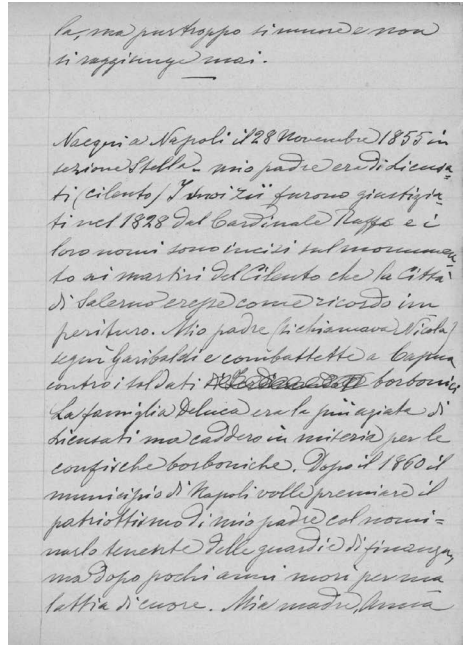 la, ma purtroppo si muore e non
si raggiunge mai.
Nacqui a Napoli il 28 Novembre 1855 in
sezione Stella - mio padre era di Licusa-
ti (Cilento) I suoi zii furono giustizia-
ti nel 1828 dal Cardinale Ruffo e i
loro nomi sono incisi sul monumen-
to ai martiri del Cilento che la Città
di Salerno eresse come ricordo im
perituro. Mio padre (si chiamava Nicola)
seguì Garibaldi e combattette a Capua
contro i soldati borbonici
La famiglia Deluca era la più agiata di
Licusati ma caddero in miseria per le
confische borboniche. Dopo il 1860 il
municipio di Napoli volle premiare il
patriottismo di mio padre col nomi=
narlo tenente delle guardie di finanza,
ma dopo pochi anni morì per ma
lattia di cuore. Mia madre, Anna